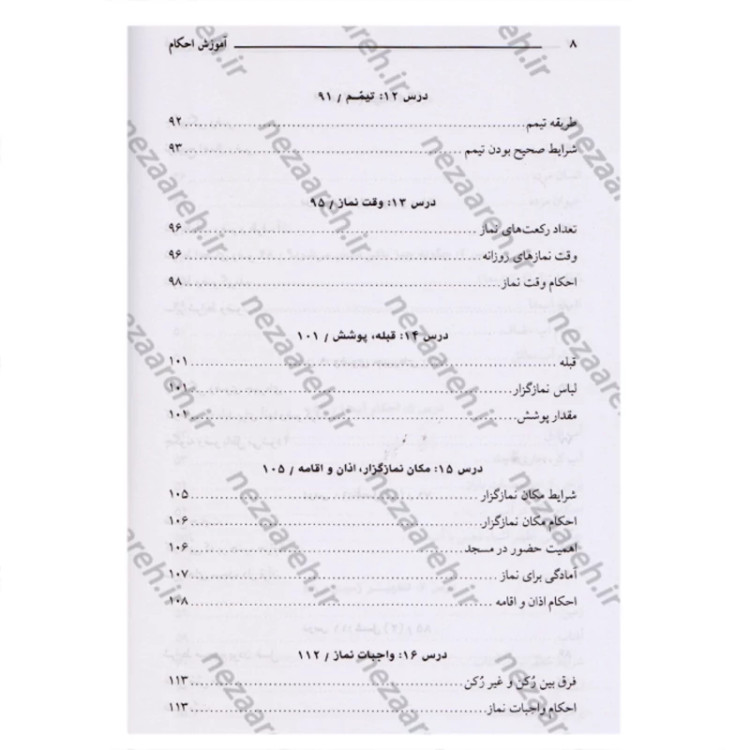 ۸ آموزش احکام
درس ۱۲: تیمّم / ۹۱
طریقه تیمم ۹۲
شرایط صحیح بودن تیمم ۹۳
درس ۱۳: وقت نماز / ۹۵
تعداد رکعت‌های نماز ۹۶
وقت نمازهای روزانه ۹۶
احکام وقت نماز ۹۸
درس ۱۴: قبله، پوشش / ۱۰۱
قبله ۱۰۱
لباس نمازگزار ۱۰۱
مقدار پوشش
درس ۱۵: مکان نمازگزار، اذان و اقامه / ۱۰۵
شرایط مکان نمازگزار ۱۰۵
احکام مکان نمازگزار ۱۰۶
اهمیت حضور در مسجد ۱۰۶
آمادگی برای نماز ۱۰۷
احکام اذان و اقامه ۱۰۸
درس ۱۶: واجبات نماز / ۱۱۲
فرق بین رُکن و غیر رُکن ۱۱۳
احکام واجبات نماز ۱۱۳
nezaareh.ir